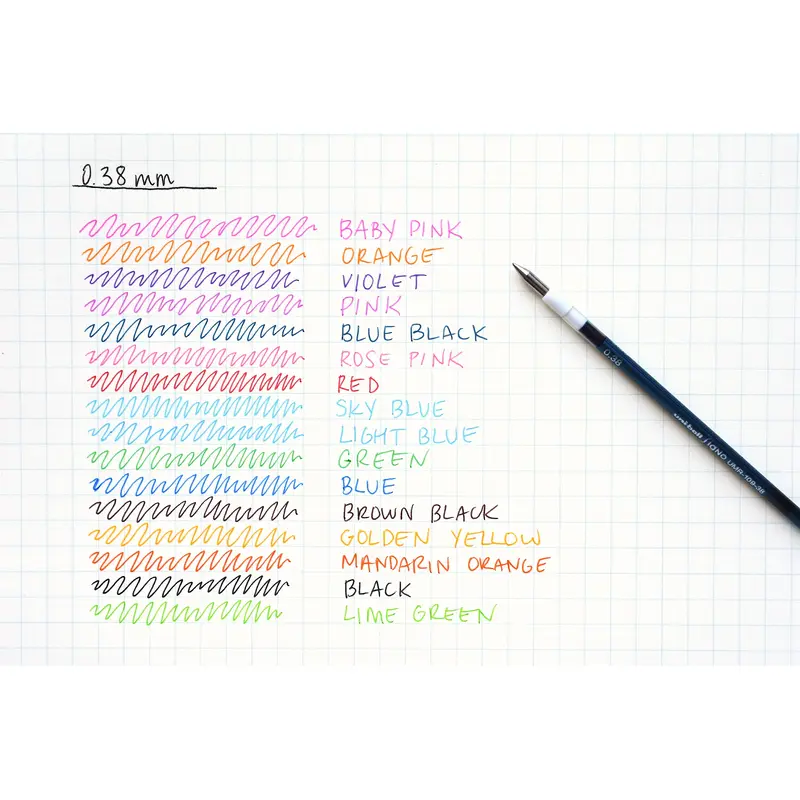 0.38 mm
BABY PINK
ORANGE
VIOLET
PINK
BLUE BLACK
ROSE PINK
RED
SKY BLUE
LIGHT BLUE
GREEN
BLUE
BROWN BLACK
GOLDEN YELLOW
MANDARIN ORANGE
BLACK
LIME GREEN
0.38
uni-ball / SIGNO UMR-109-38